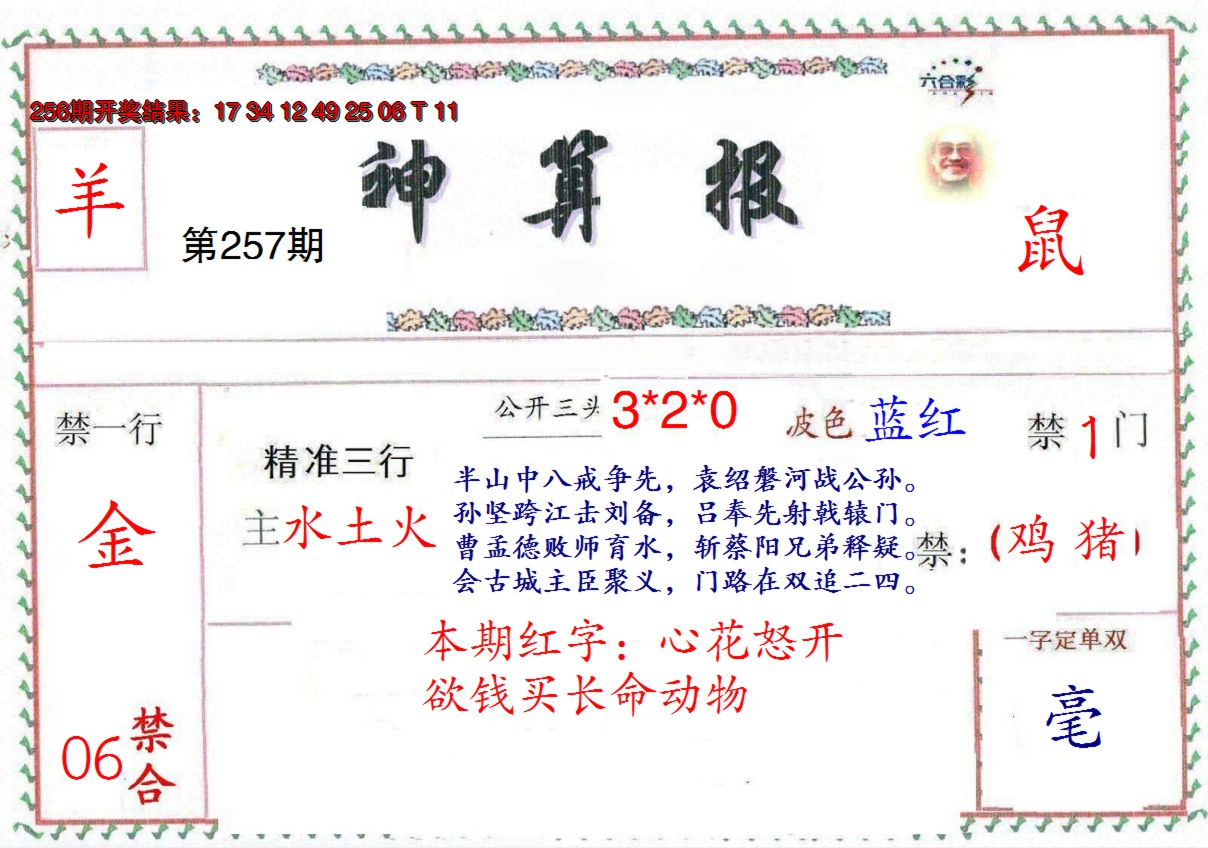 六合彩
256期开奖结果：17 34 12 49 25 06 T 11
神算报
羊
第257期
鼠
公开三头 3*2*0
波色 蓝红
禁1门
禁一行
金
精准三行
主水土火
半山中八戒争先，袁绍磐河战公孙。
孙坚跨江击刘备，吕奉先射戟辕门。
曹孟德败师育水，斩蔡阳兄弟释疑。
会古城主臣聚义，门路在双追二四。
禁：（鸡 猪）
本期红字：心花怒开
欲钱买长命动物
一字定单双
毫
06禁合